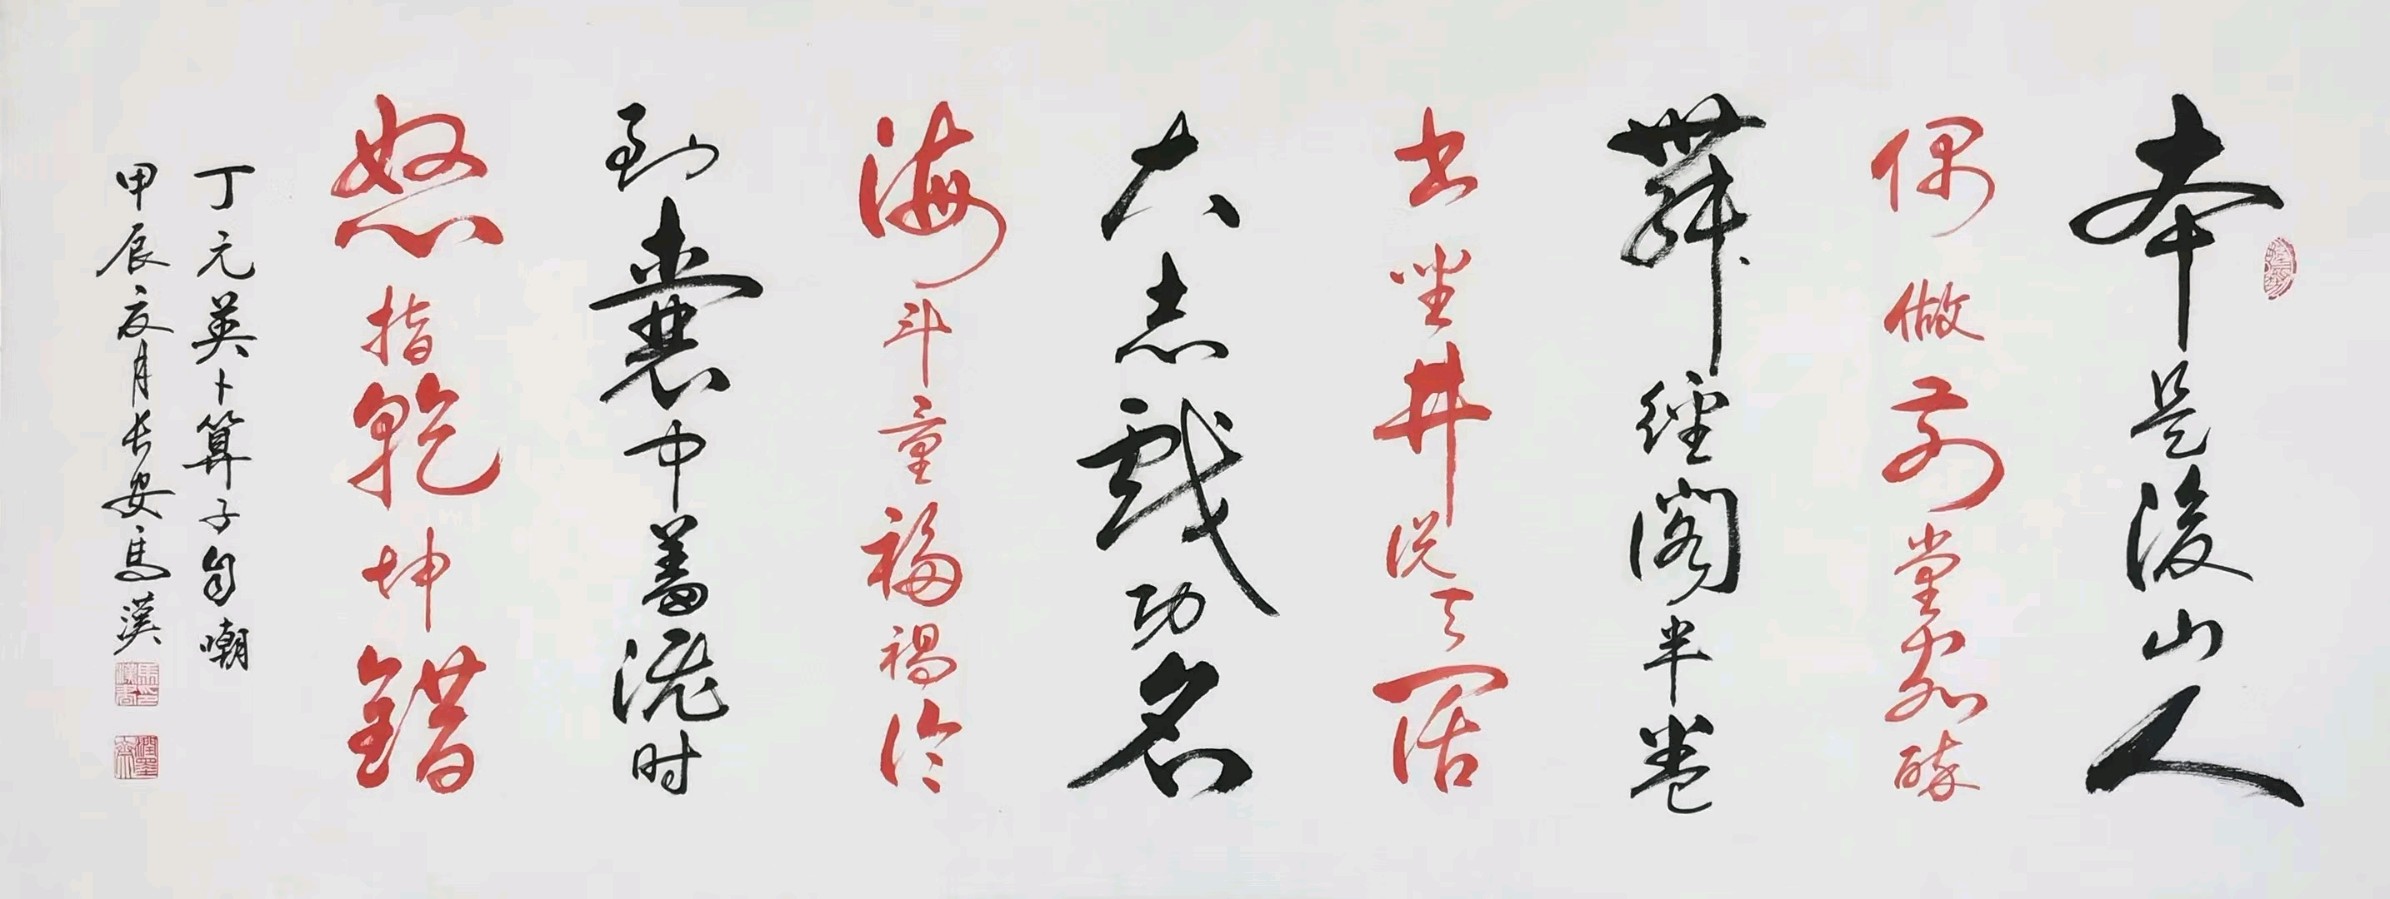 本是後山人
偶做前堂客醉
舞經閣半卷
书坐井说天阔
大志戲功名
海斗量福禍论
到囊中羞涩时
怒指乾坤錯
丁元英卜算子自嘲
甲辰夏月长安馬漢